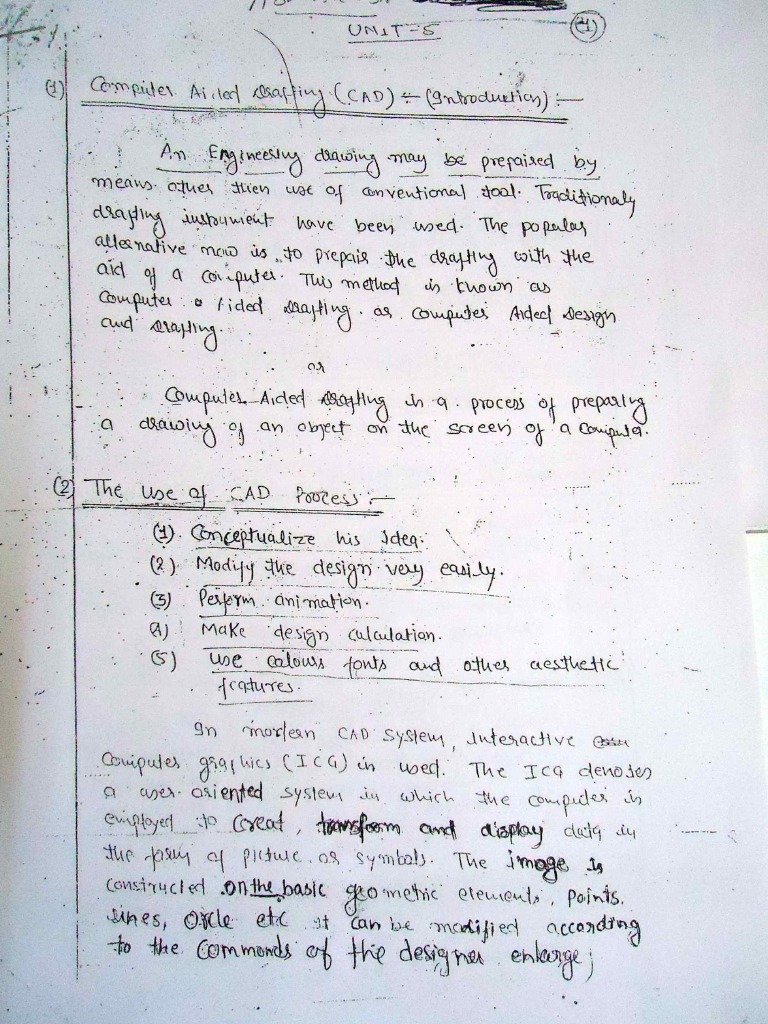 UNIT-5
(1)
(1) Computer Aided drafting (CAD) :- (Introduction) :-
An Engineering drawing may be prepaired by
means other then use of conventional tool. Traditionaly
drafting instrument have been used. The popular
alternative now is to prepair the drafting with the
aid of a computer. This method is known as
Computer Aided drafting. or computer Aided design
and drafting.
or
Computer Aided drafting is a process of preparing
a drawing of an object on the screen of a computer.
(2) The use of CAD Process :-
(1) Conceptualize his Idea.
(2) Modify the design very easily.
(3) Perform animation.
(4) Make design calculation.
(5) use colours fonts and other aesthetic
features.
In mordern CAD system, Interactive
Computer graphics (ICG) is used. The ICG denotes
a user oriented system in which the computer is
employed to Creat, transform and display data in
the form of picture or symbols. The image is
constructed on the basic geometric elements, points,
lines, circle etc it can be modified according
to the commands of the designer enlarge,